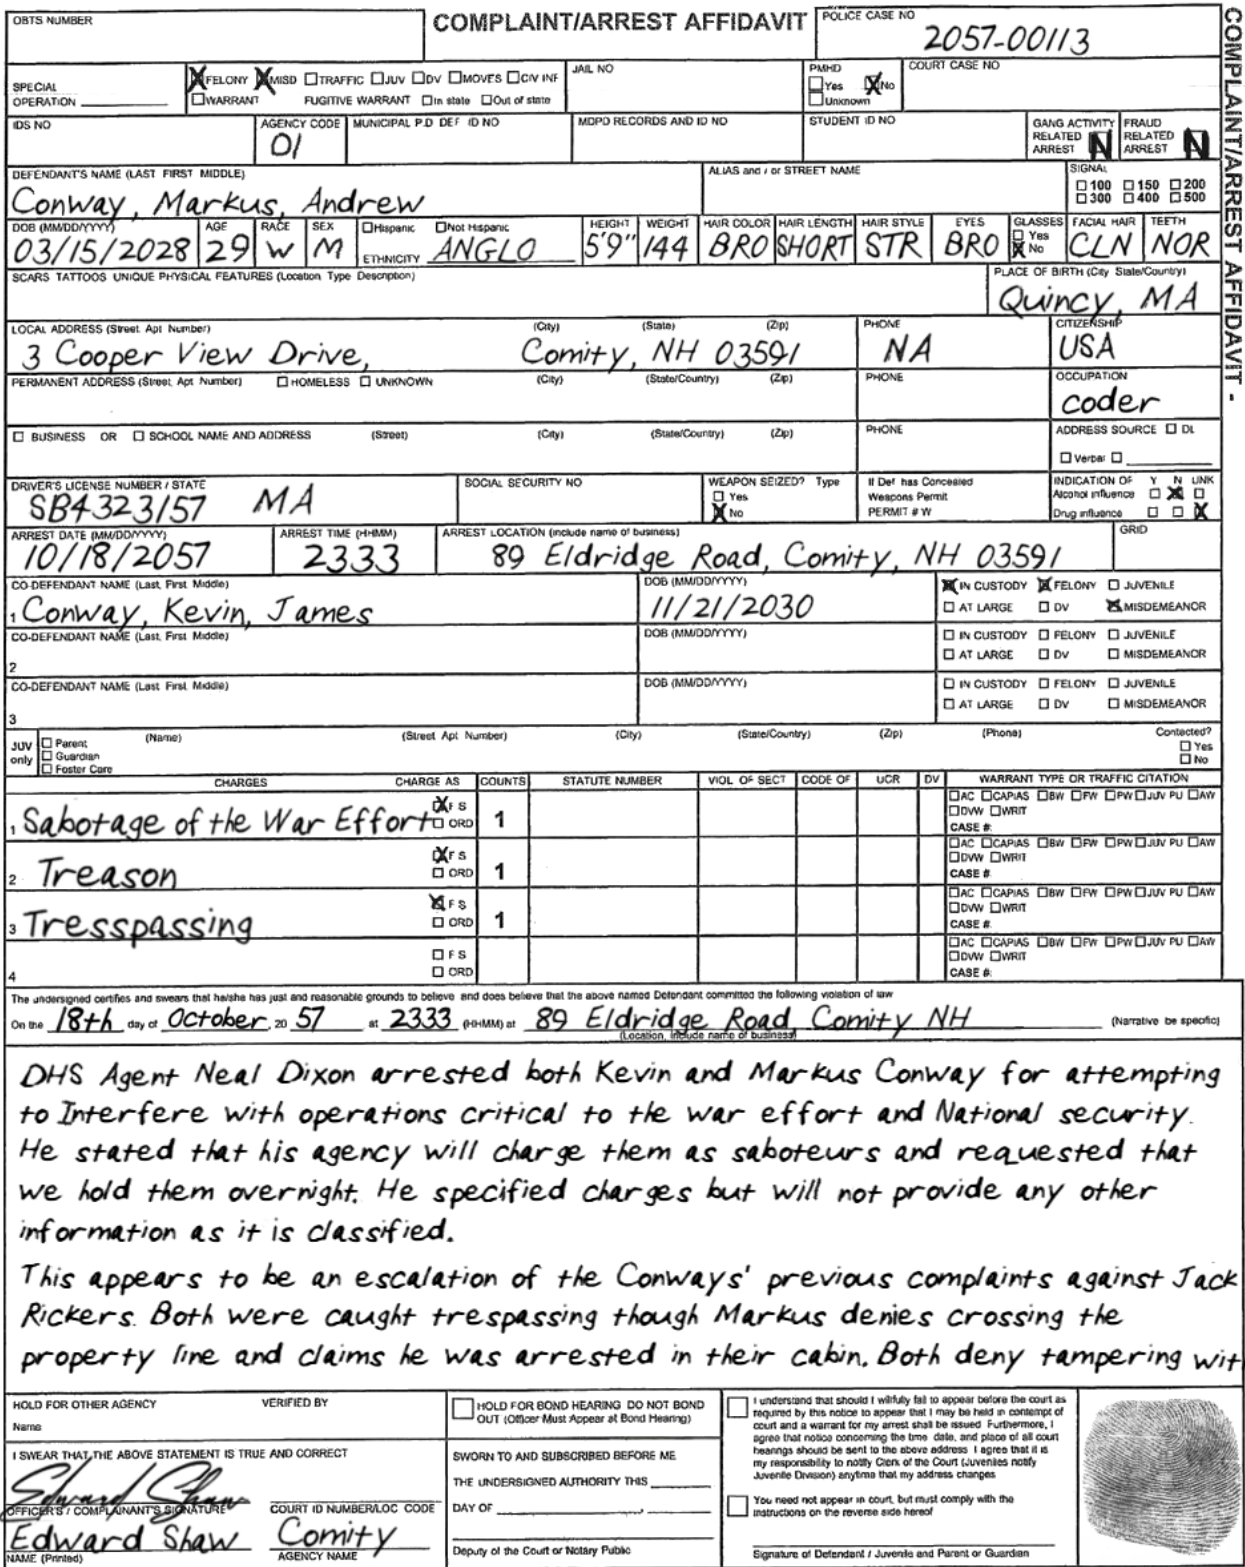 OBTS NUMBER
COMPLAINT/ARREST AFFIDAVIT
POLICE CASE NO
2057-00113
COMPLAINT/ARREST AFFIDAVIT -
SPECIAL OPERATION
FELONY MISD TRAFFIC JUV DV MOVES CIV INF
WARRANT FUGITIVE WARRANT In state Out of state
JAIL NO
PMHD
Yes No
Unknown
COURT CASE NO
IDS NO
AGENCY CODE
01
MUNICIPAL P.D DEF ID NO
MDPD RECORDS AND ID NO
STUDENT ID NO
GANG ACTIVITY RELATED ARREST N
FRAUD RELATED ARREST N
DEFENDANT'S NAME (LAST FIRST MIDDLE)
Conway, Markus, Andrew
ALIAS and / or STREET NAME
SIGNAL
100 150 200
300 400 500
DOB (MM/DD/YYYY)
03/15/2028
AGE
29
RACE
W
SEX
M
Hispanic Not Hispanic
ETHNICITY ANGLO
HEIGHT
5'9"
WEIGHT
144
HAIR COLOR
BRO
HAIR LENGTH
SHORT
HAIR STYLE
STR
EYES
BRO
GLASSES
Yes
No
FACIAL HAIR
CLN
TEETH
NOR
SCARS TATTOOS UNIQUE PHYSICAL FEATURES (Location Type Description)
PLACE OF BIRTH (City State/Country)
Quincy, MA
LOCAL ADDRESS (Street Apt Number) (City) (State) (Zip)
3 Cooper View Drive, Comity, NH 03591
PHONE
NA
CITIZENSHIP
USA
PERMANENT ADDRESS (Street, Apt Number) HOMELESS UNKNOWN (City) (State/Country) (Zip)
PHONE
OCCUPATION
coder
BUSINESS OR SCHOOL NAME AND ADDRESS (Street) (City) (State/Country) (Zip)
PHONE
ADDRESS SOURCE DL
Verbal
DRIVER'S LICENSE NUMBER / STATE
SB4323157 MA
SOCIAL SECURITY NO
WEAPON SEIZED? Type
Yes
No
If Def has Concealed
Weapons Permit
PERMIT # W
INDICATION OF Y N UNK
Alcohol influence
Drug influence
ARREST DATE (MM/DD/YYYY)
10/18/2057
ARREST TIME (HHMM)
2333
ARREST LOCATION (include name of business)
89 Eldridge Road, Comity, NH 03591
GRID
CO-DEFENDANT NAME (Last, First Middle)
1 Conway, Kevin, James
DOB (MM/DD/YYYY)
11/21/2030
IN CUSTODY FELONY JUVENILE
AT LARGE DV MISDEMEANOR
CO-DEFENDANT NAME (Last, First Middle)
2
DOB (MM/DD/YYYY)
IN CUSTODY FELONY JUVENILE
AT LARGE DV MISDEMEANOR
CO-DEFENDANT NAME (Last First Middle)
3
DOB (MM/DD/YYYY)
IN CUSTODY FELONY JUVENILE
AT LARGE DV MISDEMEANOR
JUV only
Parent
Guardian
Foster Care
(Name) (Street Apt Number) (City) (State/Country) (Zip) (Phone)
Contacted?
Yes
No
CHARGES CHARGE AS COUNTS STATUTE NUMBER VIOL OF SECT CODE OF UCR DV WARRANT TYPE OR TRAFFIC CITATION
1 Sabotage of the War Effort F S ORD 1
AC CAPIAS BW FW PW JUV PU AW
DVW WRIT
CASE #:
2 Treason F S ORD 1
AC CAPIAS BW FW PW JUV PU AW
DVW WRIT
CASE #
3 Tresspassing F S ORD 1
AC CAPIAS BW FW PW JUV PU AW
DVW WRIT
CASE #:
4 F S ORD
AC CAPIAS BW FW PW JUV PU AW
DVW WRIT
CASE #:
The undersigned certifies and swears that he/she has just and reasonable grounds to believe and does believe that the above named Defendant committed the following violation of law
On the 18th day of October, 20 57 at 2333 (HHMM) at 89 Eldridge Road, Comity NH (Narrative be specific)
(Location, include name of business)
DHS Agent Neal Dixon arrested both Kevin and Markus Conway for attempting
to Interfere with operations critical to the war effort and National security.
He stated that his agency will charge them as saboteurs and requested that
we hold them overnight. He specified charges but will not provide any other
information as it is classified.
This appears to be an escalation of the Conways' previous complaints against Jack
Rickers. Both were caught trespassing though Markus denies crossing the
property line and claims he was arrested in their cabin. Both deny tampering wit
HOLD FOR OTHER AGENCY VERIFIED BY
Name
I SWEAR THAT THE ABOVE STATEMENT IS TRUE AND CORRECT
Edward Shaw
OFFICER'S / COMPLAINANT'S SIGNATURE COURT ID NUMBER/LOC CODE
Edward Shaw Comity
NAME (Printed) AGENCY NAME
HOLD FOR BOND HEARING DO NOT BOND
OUT (Officer Must Appear at Bond Hearing)
SWORN TO AND SUBSCRIBED BEFORE ME
THE UNDERSIGNED AUTHORITY THIS
DAY OF
Deputy of the Court or Notary Public
I understand that should I willfully fail to appear before the court as
required by this notice to appear that I may be held in contempt of
court and a warrant for my arrest shall be issued Furthermore, I
agree that notice concerning the time date, and place of all court
hearings should be sent to the above address I agree that it is
my responsibility to notify Clerk of the Court (Juveniles notify
Juvenile Division) anytime that my address changes
You need not appear in court, but must comply with the
instructions on the reverse side hereof
Signature of Defendant / Juvenile and Parent or Guardian